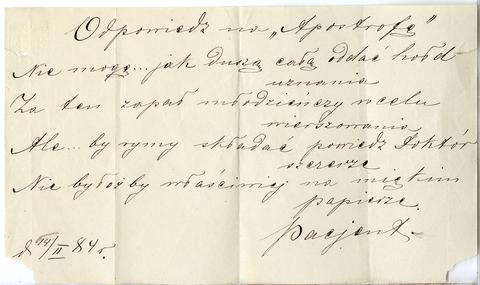 Odpowiedz na „Apostrofę”
Nie mogę... jak duszą całą oddać hołd
uznania
Za ten zapał młodzieńczy w celu
wierszowania
Ale... by rymy składać powiedz Doktór
szczerze
Nie byłożby właściwiej na miękim
papierze.
Pacjent.
d 14/II 84 r.